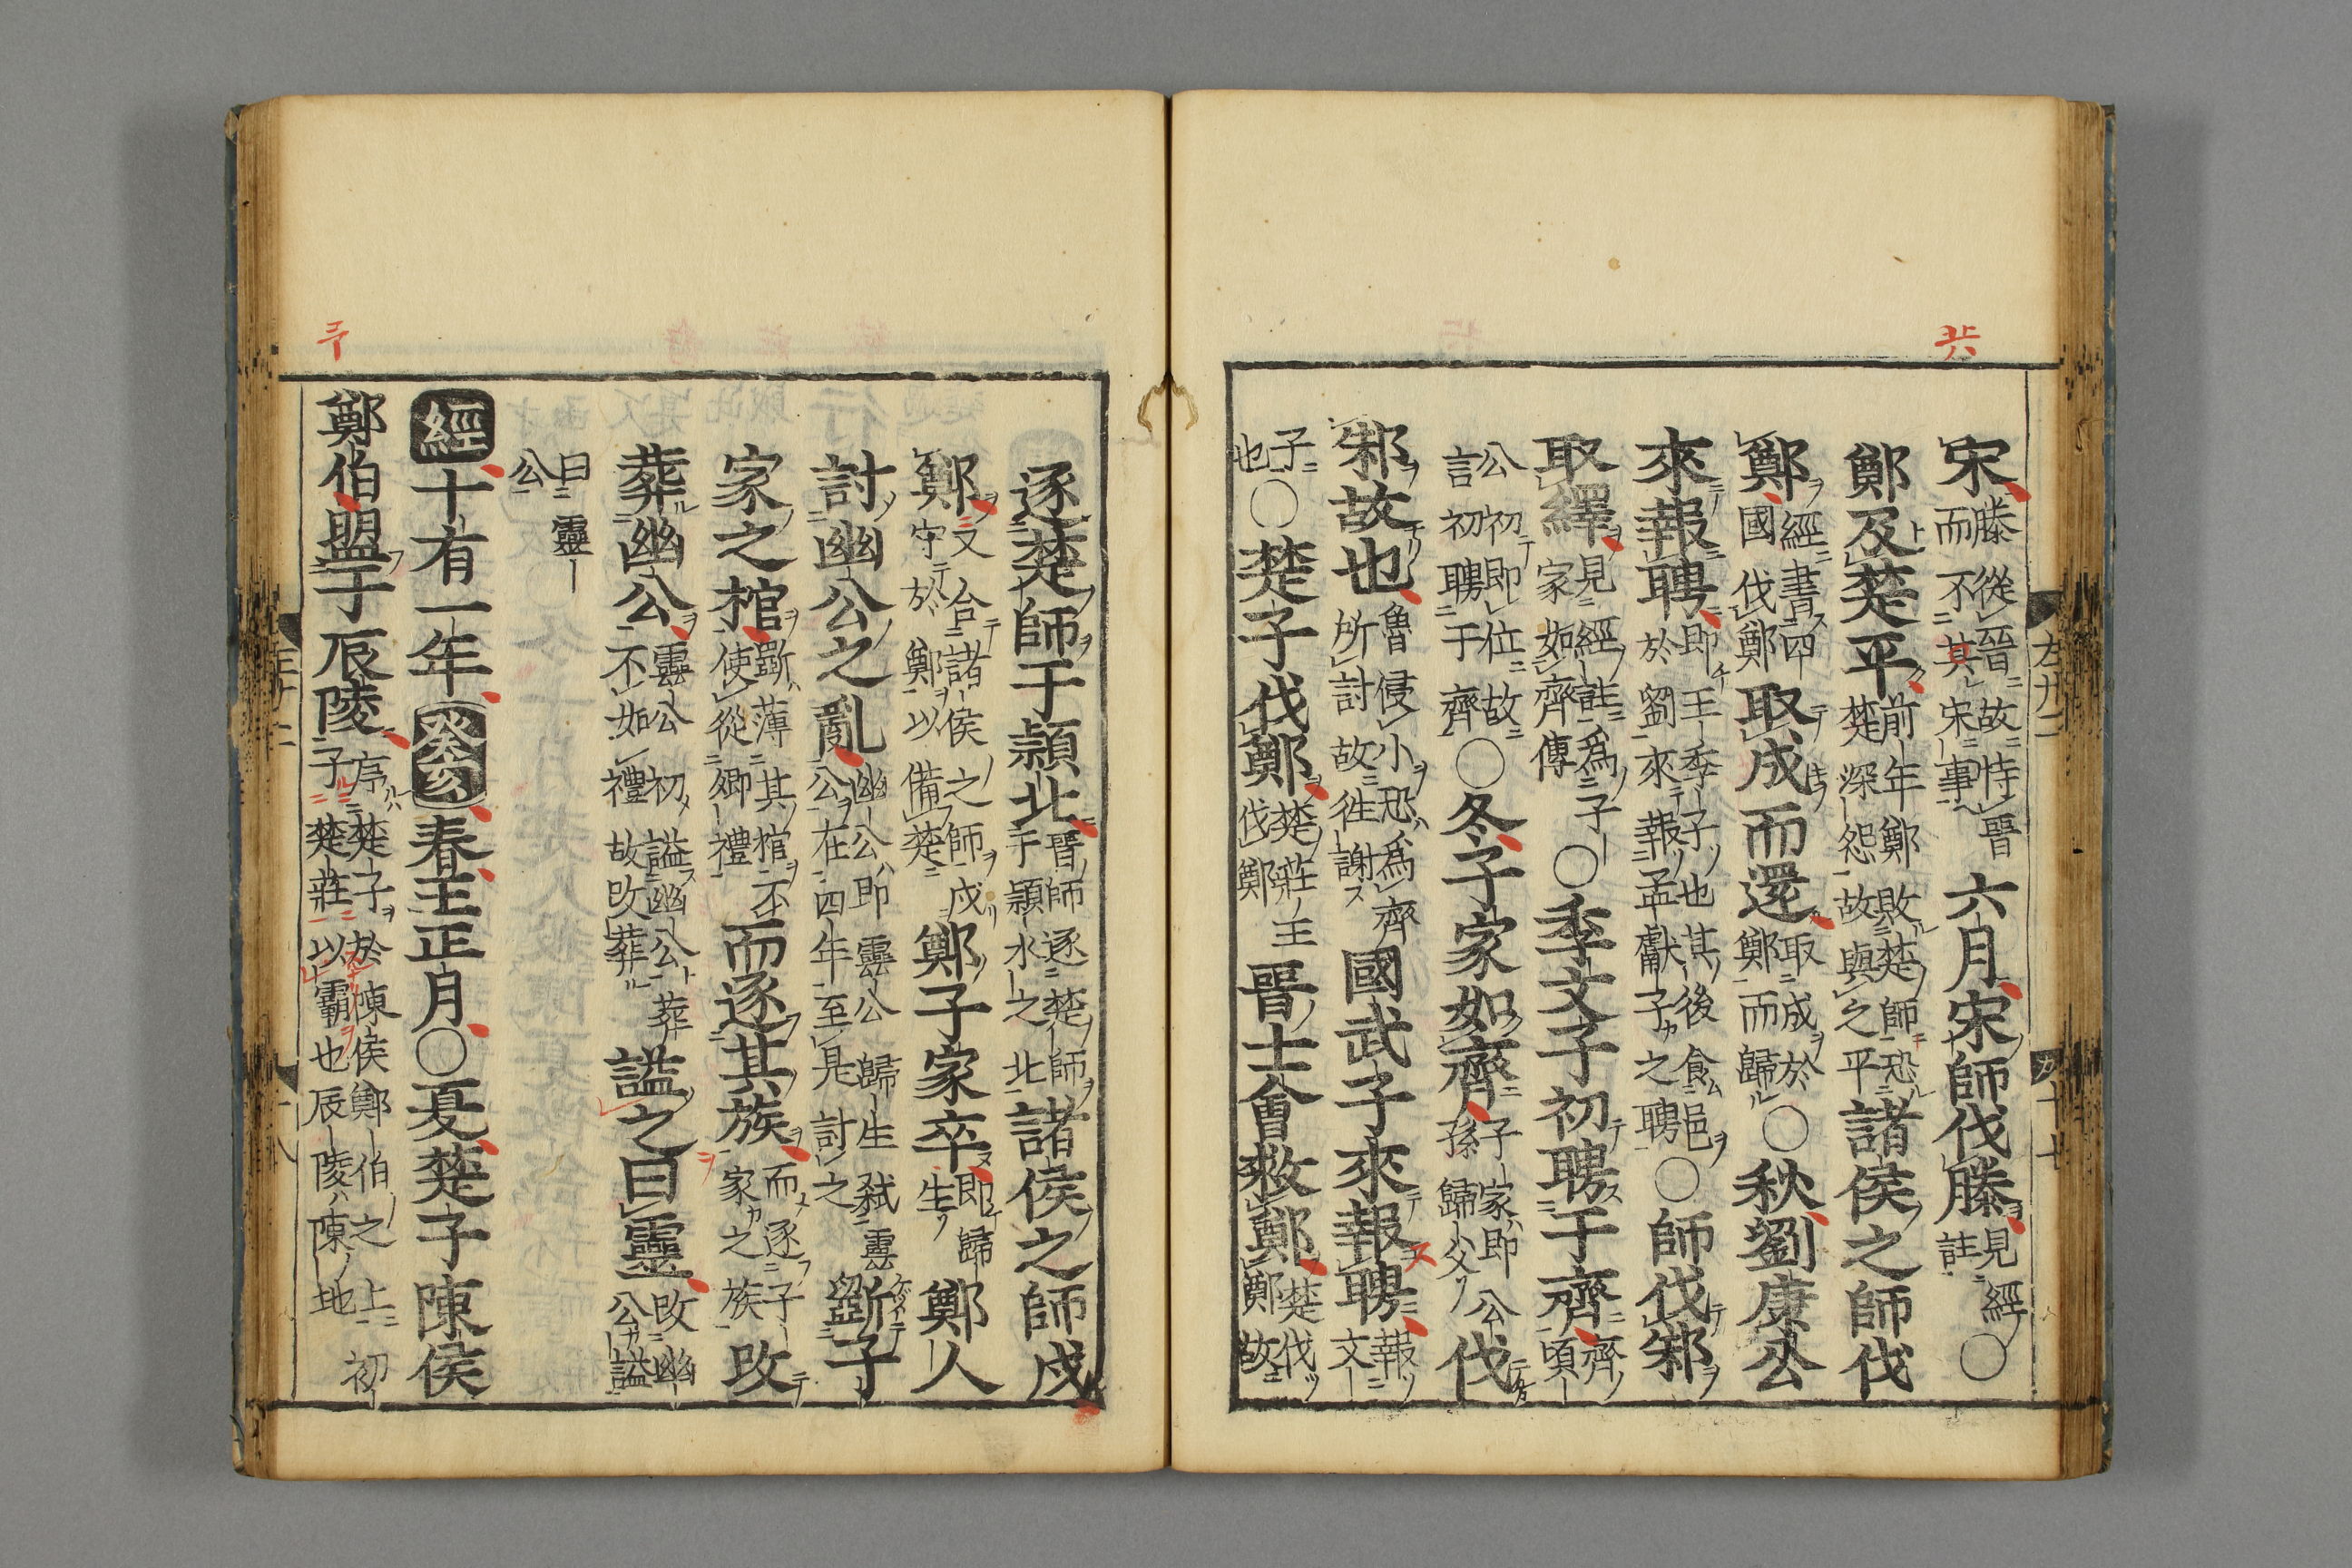 宋滕從晉故恃晉而不其宋事六月宋師伐滕見經註〇
鄭及楚平前年鄭敗楚師恐楚深怨故與之平諸侯之師伐
鄭經書四國伐鄭取成而還取成於鄭而歸〇秋劉康公
來報聘即王季子也其後食邑於劉來報孟獻子之聘〇師伐邾
取繹見經註爲子家如齊傳〇季文子初聘于齊齊頃
公初即位故言初聘于齊〇冬子家如齊子家即公孫歸父伐
邾故也魯侵小恐爲齊所討故往謝國武子來報聘報文
子也〇楚子伐鄭楚莊王伐鄭晉士會救鄭楚伐鄭故
逐楚師于頴北晉師逐楚師于頴水之北諸侯之師戍
鄭又合諸侯之師戍守於鄭以備楚鄭子家卒即歸生鄭人
討幽公之亂幽公即靈公歸生弑靈公在四年至是討之斲子
家之棺斲薄其棺不使從卿禮而逐其族而逐子家之族改
葬幽公靈公初謚幽公葬不如禮故改葬謚之曰靈改幽公謚
曰靈公
經十有一年癸亥春王正月〇夏楚子陳侯
鄭伯盟于辰陵序楚子於陳侯鄭伯之上初子楚莊以霸也辰陵陳地